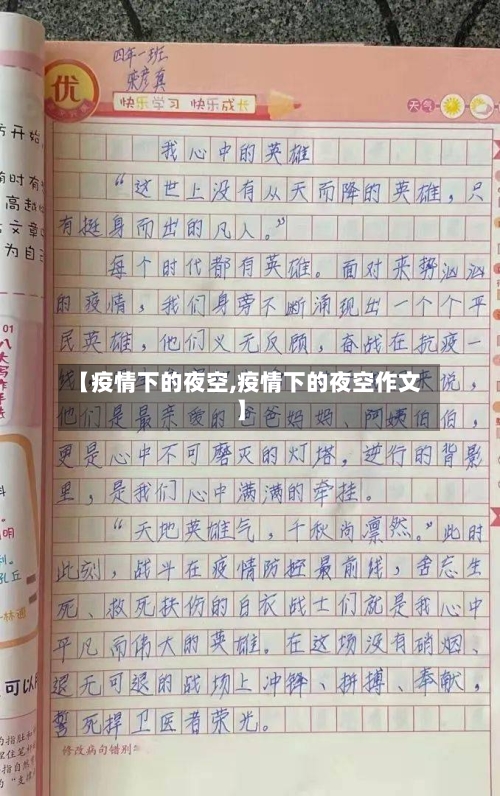 四年一班
优
快乐学习 快乐成长
天气
我心中的英雄
“这世上没有从天而降的英雄，只
有挺身而出的凡人。”
每个时代都有英雄。面对来势汹汹
的疫情，我们身旁不断涌现出一个个平
民英雄，他们义无反顾，奋战在抗疫一
来说，
【疫情下的夜空,疫情下的夜空作文
】
他们是最亲爱的爸爸妈妈、阿姨伯伯，
更是心中不可磨灭的灯塔。逆行的背影
里，是我们心中满满的牵挂。
“天地英雄气，千秋尚凛然。”此时
此刻，战斗在疫情防控最前线，舍忘生
死、救死扶伤的白衣战士们就是我心中
平凡而伟大的英雄。在这场没有硝烟、
退无可退的战场上冲锋、拼搏、奉献，
誓死捍卫医者荣光。
修改病句错别
方开始
时有
高越
文章
为自
01
八大写作手法
料
明
孔丘
林画
可以